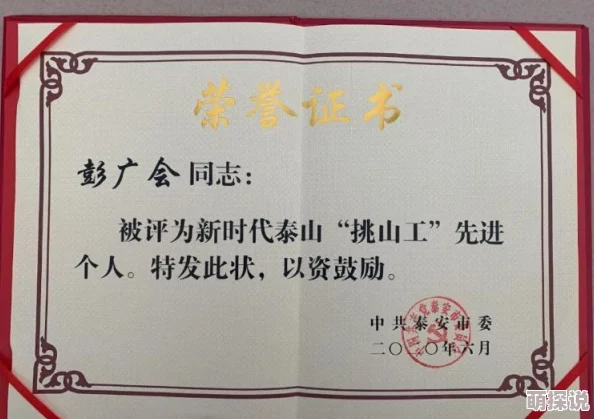 荣誉证书
彭广会同志：
被评为新时代泰山“挑山工”先进
个人。特发此状，以资鼓励。
中共泰安市委
二〇二〇年六月
萌探说